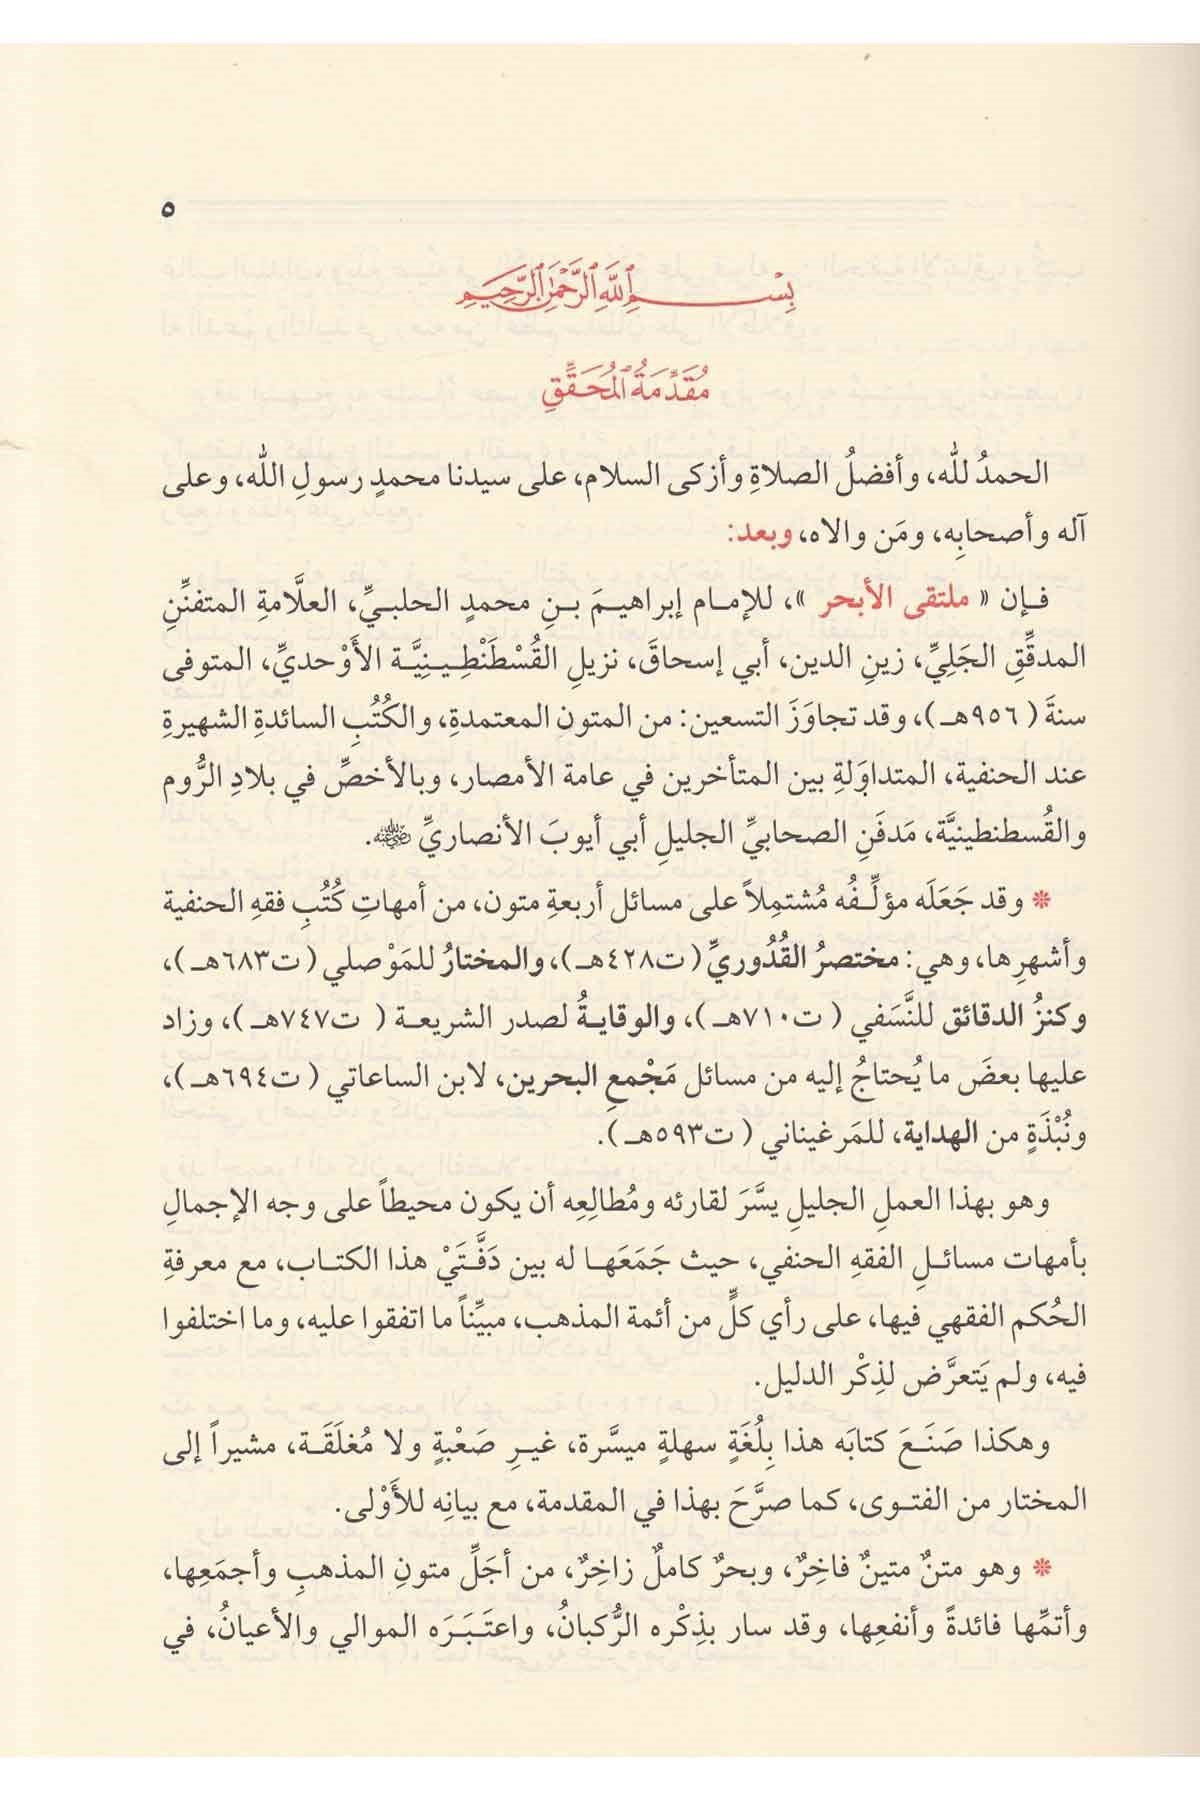 ٥
بِسْمِ اللَّهِ الرَّحْمَٰنِ الرَّحِيمِ
مُقَدِّمَةُ المُحَقِّقِ
الحمدُ لله، وأفضلُ الصلاةِ وأزكى السلام، على سيدنا محمدٍ رسولِ الله، وعلى
آله وأصحابِه، ومَن والاه، وبعد:
فإن « ملتقى الأبحر »، للإمام إبراهيمَ بنِ محمدٍ الحلبيِّ، العلَّامةِ المتفنِّنِ
المدقِّقِ الجَلِيِّ، زينِ الدين، أبي إسحاقَ، نزيلِ القُسْطَنْطِينِيَّة الأَوْحديِّ، المتوفى
سنةَ (٩٥٦هـ)، وقد تجاوَزَ التسعين: من المتون المعتمدةِ، والكُتُبِ السائدةِ الشهيرةِ
عند الحنفية، المتداوَلةِ بين المتأخرين في عامة الأمصار، وبالأخصِّ في بلادِ الرُّوم
والقُسطنطينيَّة، مَدفَنِ الصحابيِّ الجليلِ أبي أيوبَ الأنصاريِّ رضي الله عنه.
❋ وقد جَعَلَه مؤلِّفُه مُشتمِلاً على مسائل أربعةِ متون، من أمهاتِ كُتُبِ فقهِ الحنفية
وأشهرِها، وهي: مختصرُ القُدُوريِّ (ت٤٢٨هـ)، والمختارُ للمَوْصلي (ت٦٨٣هـ)،
وكنزُ الدقائق للنَّسَفي (ت٧١٠هـ)، والوقايةُ لصدر الشريعة ( ت٧٤٧هـ)، وزاد
عليها بعضَ ما يُحتاجُ إليه من مسائل مَجْمعِ البحرين، لابن الساعاتي (ت٦٩٤هـ)،
ونُبْذَةٍ من الهداية، للمَرغيناني (ت٥٩٣هـ).
وهو بهذا العملِ الجليلِ يسَّرَ لقارئه ومُطالِعِه أن يكون محيطاً على وجه الإجمالِ
بأمهات مسائلِ الفقهِ الحنفي، حيث جَمَعَها له بين دَفَّتَيْ هذا الكتاب، مع معرفةِ
الحُكم الفقهي فيها، على رأي كلٍّ من أئمة المذهب، مبيِّناً ما اتفقوا عليه، وما اختلفوا
فيه، ولم يَتعرَّض لذِكْر الدليل.
وهكذا صَنَعَ كتابَه هذا بِلُغَةٍ سهلةٍ ميسَّرة، غيرِ صَعْبةٍ ولا مُغلَقَة، مشيراً إلى
المختار من الفتوى، كما صرَّحَ بهذا في المقدمة، مع بيانِه للأَوْلى.
❋ وهو متنٌ متينٌ فاخِرٌ، وبحرٌ كاملٌ زاخِرٌ، من أجَلِّ متونِ المذهبِ وأجمَعِها،
وأتمِّها فائدةً وأنفعِها، وقد سار بذِكْره الرُّكبانُ، واعتَبَرَه الموالي والأعيانُ، في